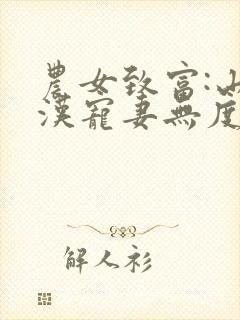 農女致富:山
漢寵妻無度
解人衫